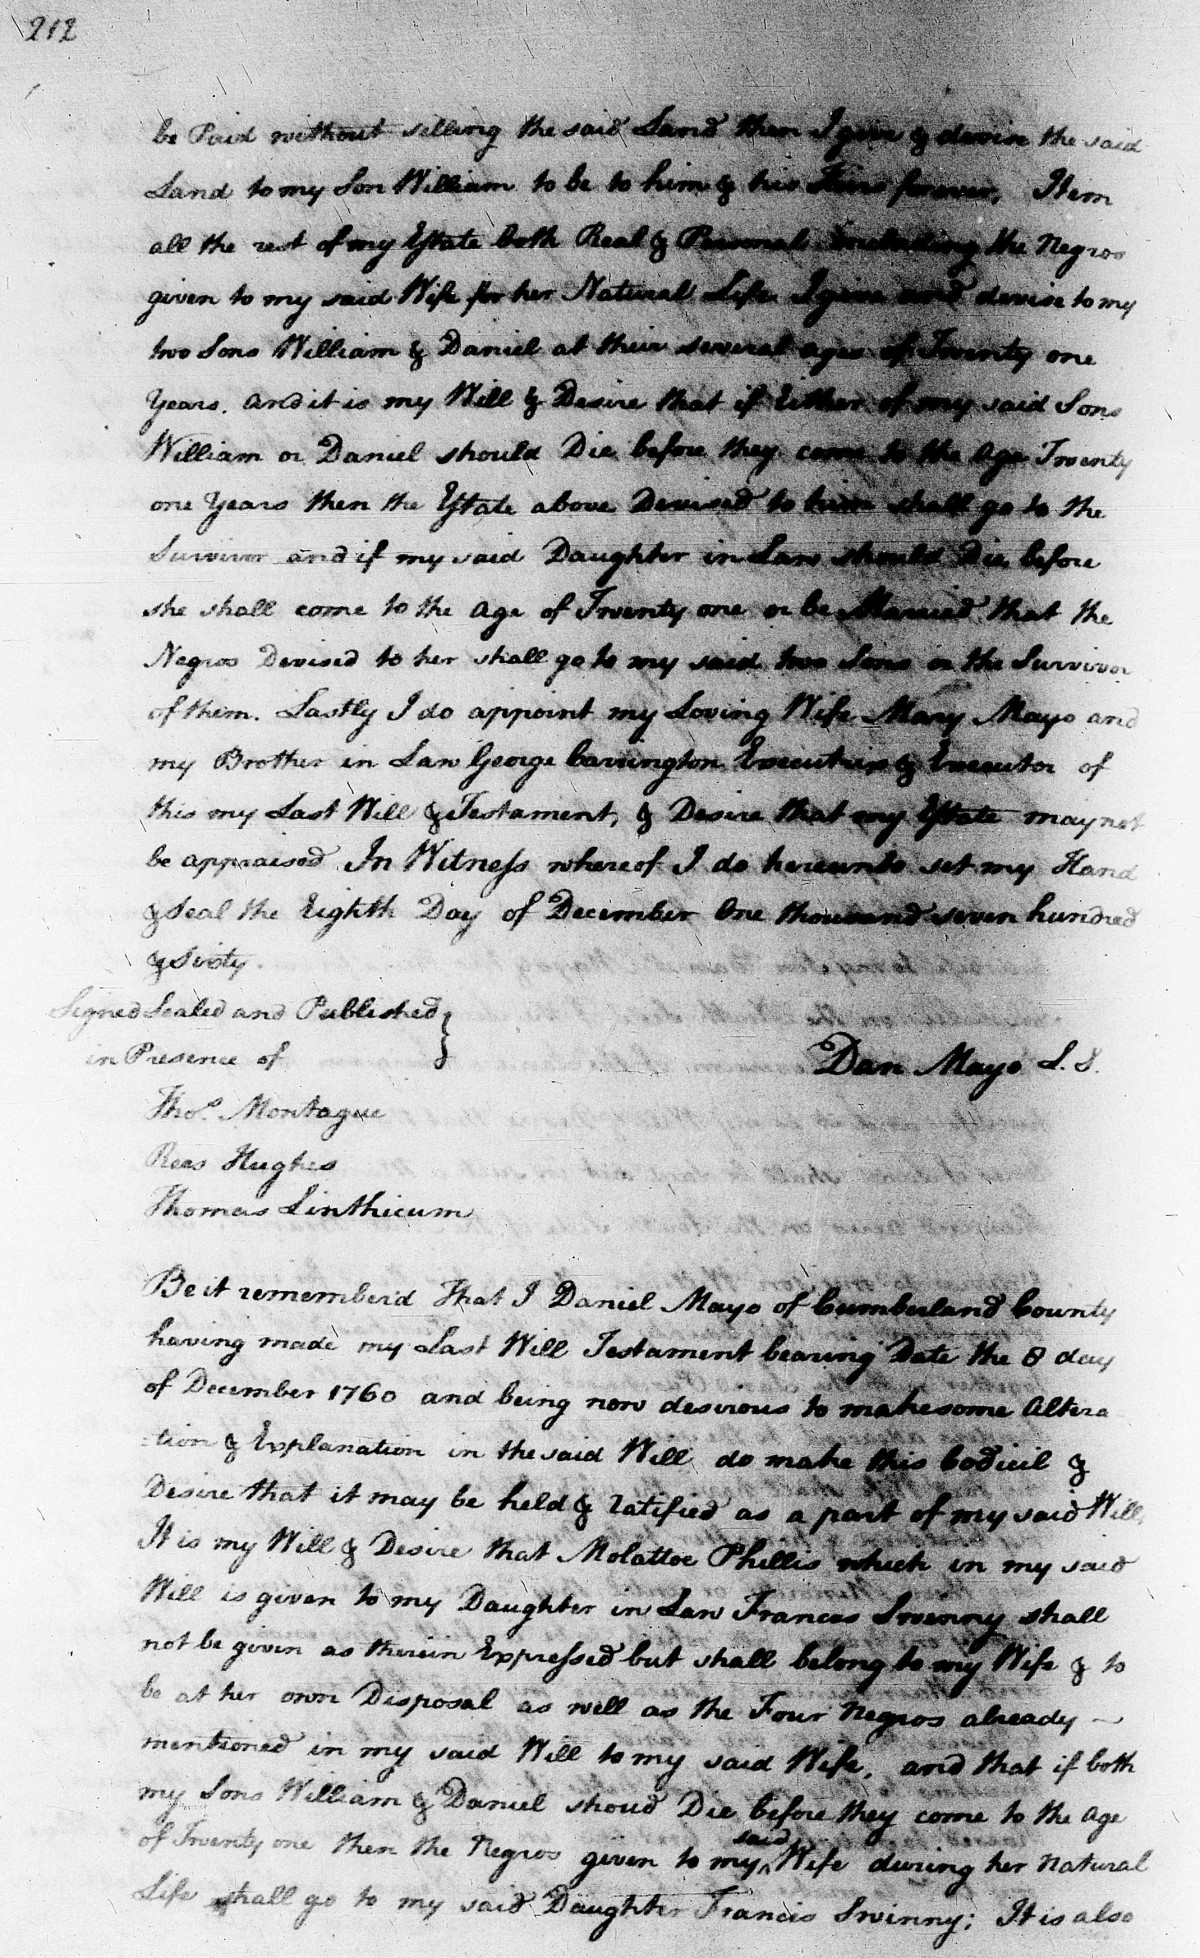 212
be Paid without selling the said Land then I give & devise the said
Land to my Son William to be to him & his Heirs forever. Item
all the rest of my Estate both Real & Personal including the Negros
given to my said Wife for her Natural Life I give and devise to my
two Sons William & Daniel at their several ages of Twenty one
Years. and it is my Will & Desire that if Either of my said Sons
William or Daniel should Die before they come to the Age Twenty
one Years then the Estate above Devised to him shall go to the
Survivor and if my said Daughter in Law should Die before
she shall come to the Age of Twenty one or be Married that the
Negros Devised to her shall go to my said two Sons or the Survivor
of them. Lastly I do appoint my Loving Wife Mary Mayo and
my Brother in Law George Carrington Executrix & Executor of
this my Last Will & Testament, & Desire that my Estate may not
be appraised In Witness whereof I do hereunto set my Hand
& Seal the Eighth Day of December One thousand seven hundred
& Sixty.
Signed Sealed and Published }
in Presence of
Dan Mayo L. S.
Thos. Montague
Rees Hughes
Thomas Linthicum
Be it rememberd That I Daniel Mayo of Cumberland County
having made my Last Will Testament bearing Date the 8 day
of December 1760 and being now desirous to make some Altera
-tion & Explanation in the said Will do make this Codicil &
Desire that it may be held & ratified as a part of my said Will,
It is my Will & Desire that Molattoe Phillis which in my said
Will is given to my Daughter in Law Frances Swinny shall
not be given as therein Expressed but shall belong to my Wife & to
be at her own Disposal as well as the Four Negros already —
mentioned in my said Will to my said Wife, and that if both
my Sons William & Daniel shoud Die before they come to the Age
of Twenty one then the Negros given to my said Wife during her Natural
Life shall go to my said Daughter Francis Swinny; It is also